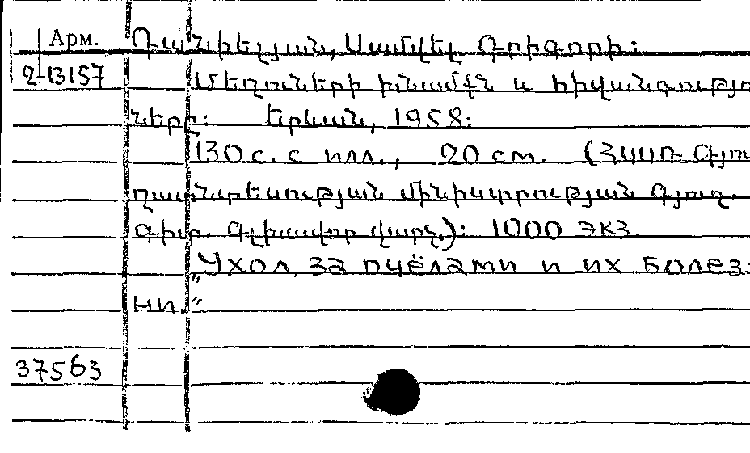 Арм. Դանիելյան, Սամվել Գրիգորի:
2-13157 Մեղուների խնամքն և հիվանդությո
ները: Երևան, 1958:
130 с. с илл., 20 cm. (ՀՍՍՌ Գյու
ղատնտեսության մինիստրության Գյուղ.
գիտ. Գլխավոր վարչ.): 1000 экз.
"Уход за пчёлами и их болез-
ни."
37563